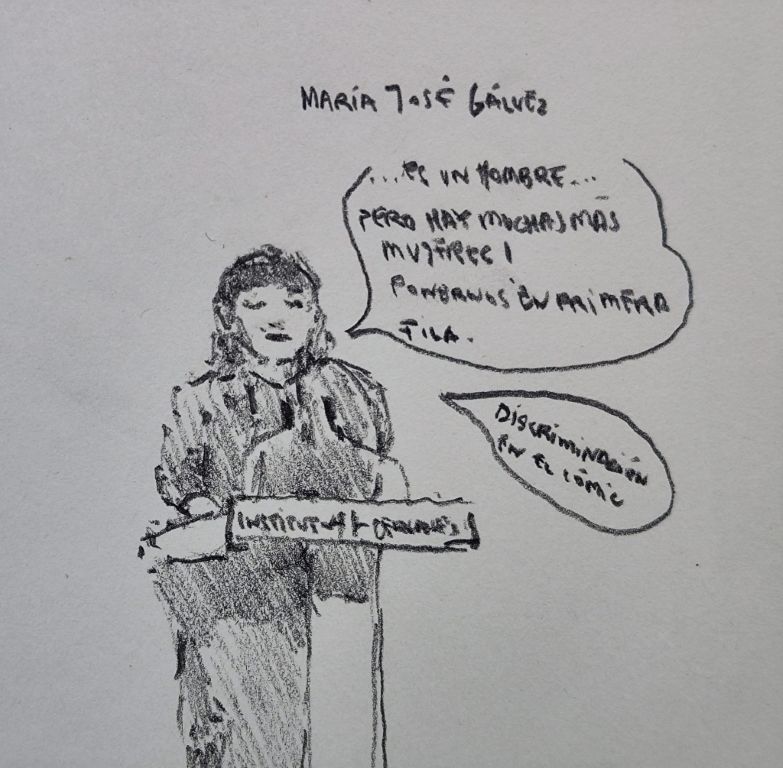 MARÍA JOSÉ GÁLVEZ
...ES UN HOMBRE...
PERO HAY MUCHAS MÁS
MUJERES!
PONERNOS EN PRIMERA
FILA.
DISCRIMINACIÓN
EN EL CÓMIC